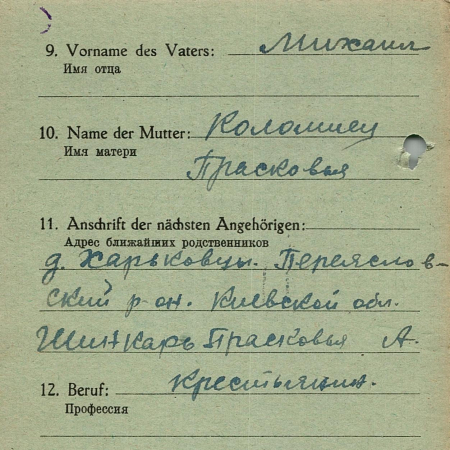 9. Vorname des Vaters: Михаил
Имя отца
10. Name der Mutter: Коломиец
Имя матери
Прасковья
11. Anschrift der nächsten Angehörigen:
Адрес ближайших родственников
д. Харьковцы. Переяслов-
ский р-он. Киевской обл.
Шинкарь Прасковья А.
12. Beruf: Крестьянин.
Профессия